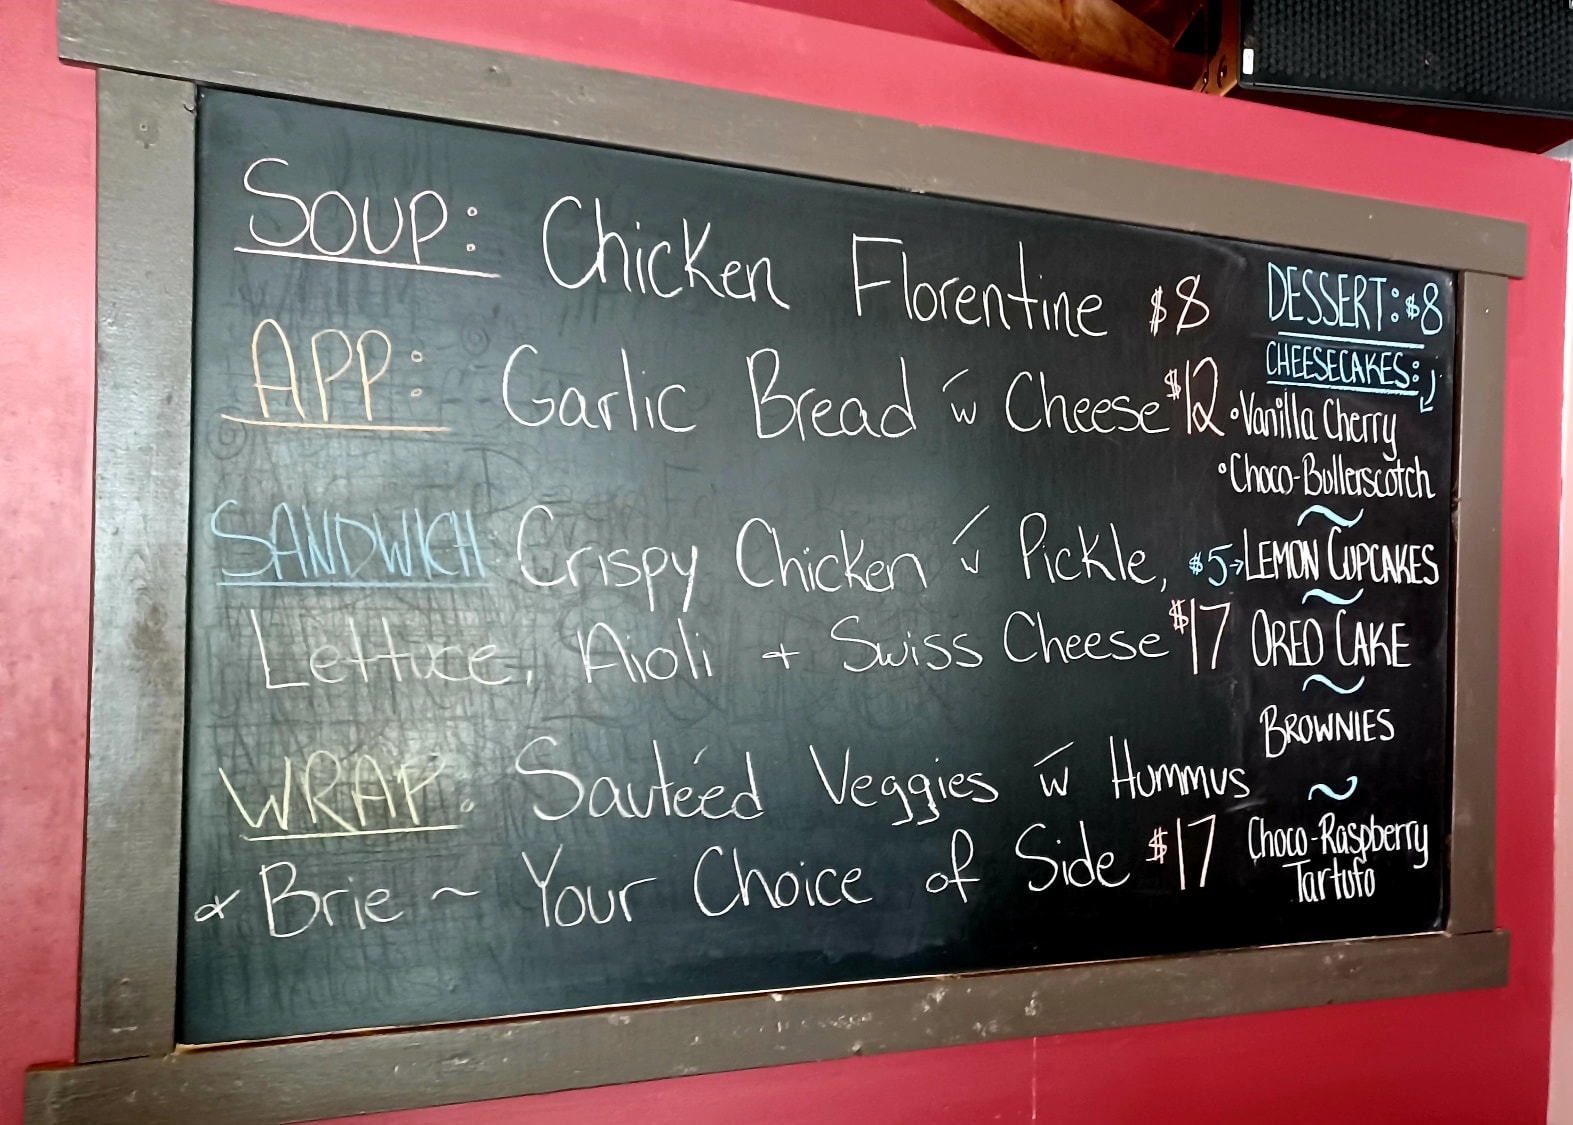 SOUP: Chicken Florentine $8
APP: Garlic Bread w̄ Cheese $12
SANDWICH Crispy Chicken w̄ Pickle,
Lettuce, Aioli + Swiss Cheese $17
WRAP: Sautéed Veggies w̄ Hummus
+ Brie ~ Your Choice of Side $17
DESSERT: $8
CHEESECAKES:
• Vanilla Cherry
• Choco-Butterscotch
~
$5→ LEMON CUPCAKES
~
OREO CAKE
~
BROWNIES
~
Choco-Raspberry
Tartufo